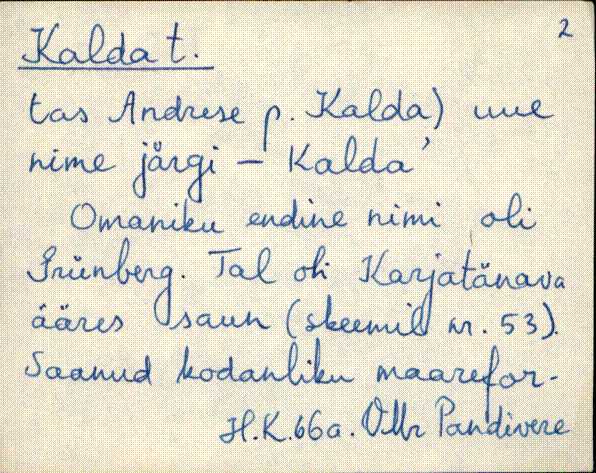 2
Kalda t.
tas Andrese p. Kalda) uue
nime järgi – Kalda'
Omaniku endine nimi oli
Grünberg. Tal oli Karjatänava
ääres saun (skeemil nr. 53).
Saanud kodanliku maarefor-
H.K. 66a. VMr Pandivere